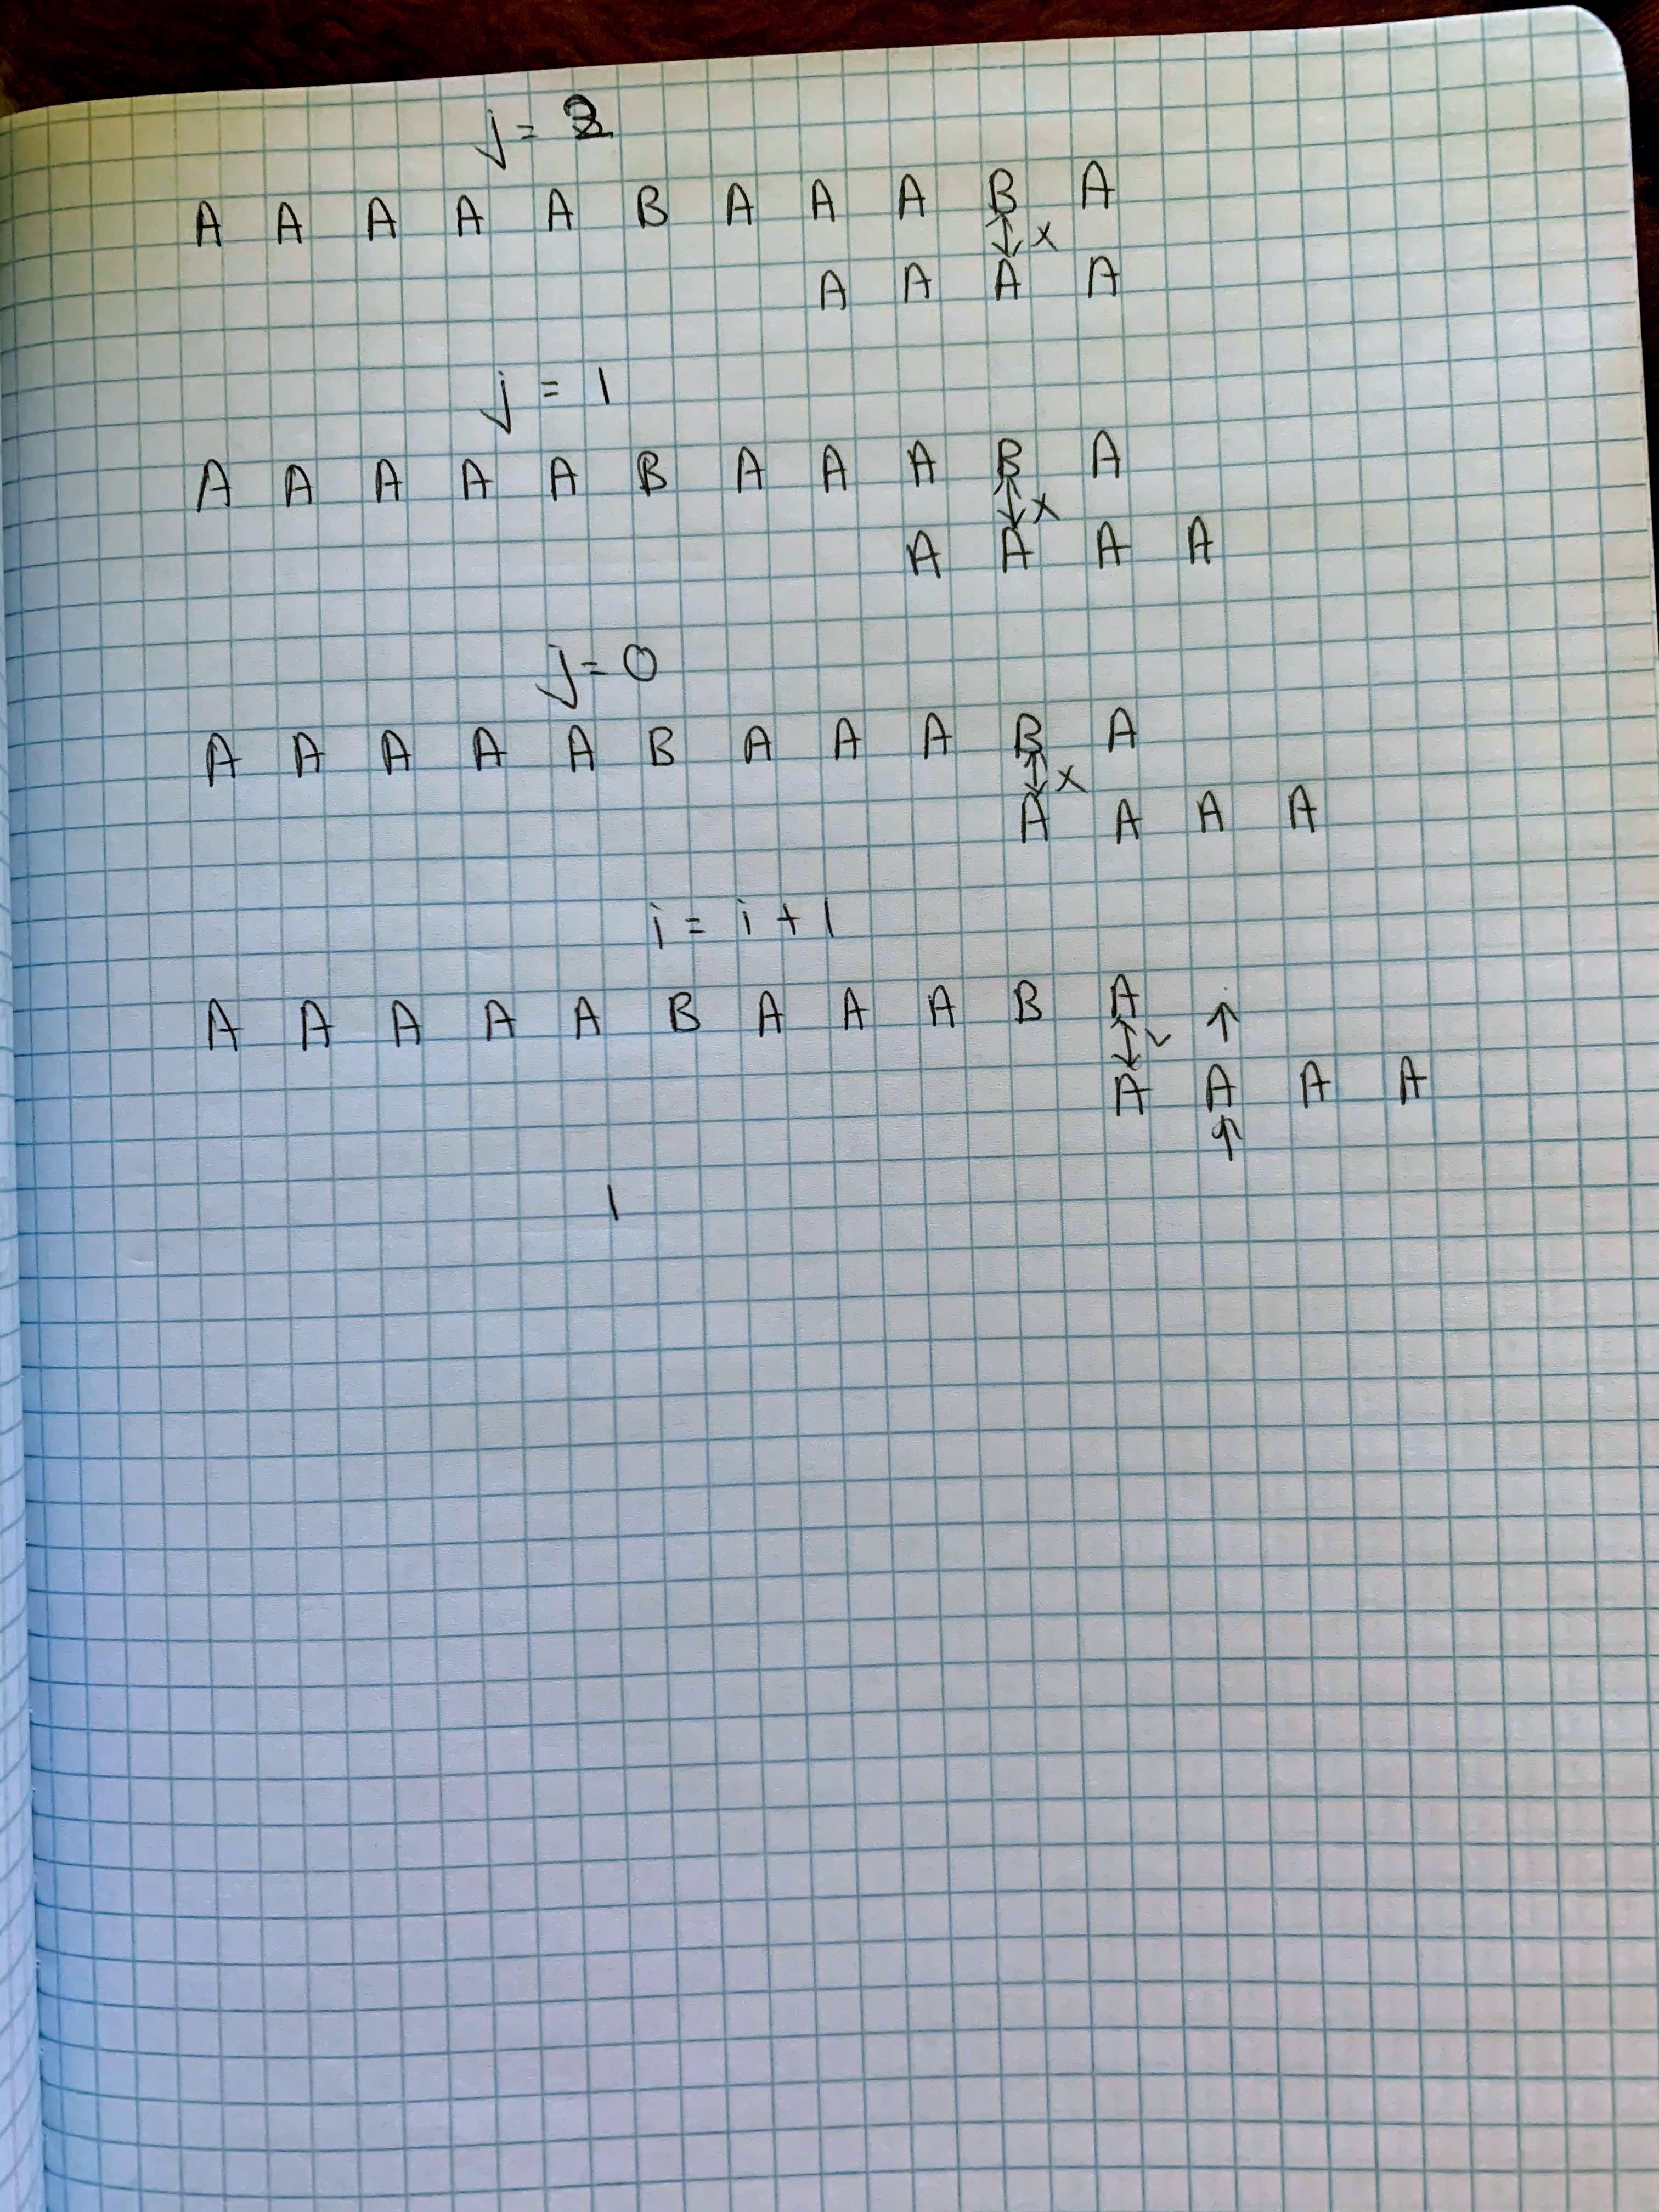 j = 2
A A A A A B A A A B A
x
A A A A
j = 1
A A A A A B A A A B A
x
A A A A
j = 0
A A A A A B A A A B A
x
A A A A
i = i + 1
A A A A A B A A A B A ↑
✓
A A A A
↑
1